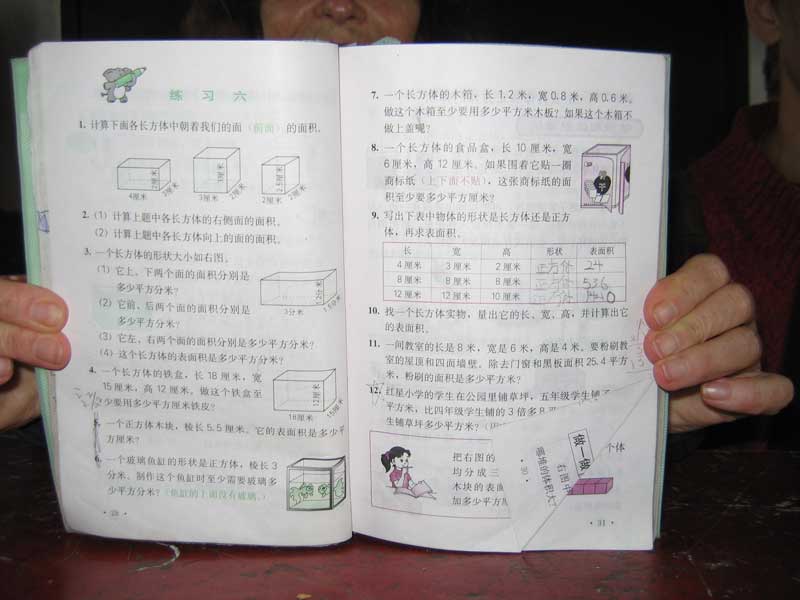 练习六
1. 计算下面各长方体中朝着我们的面（前面）的面积。
4厘米 2厘米 2厘米
3厘米 3厘米 2厘米
2厘米 2.5厘米 2厘米
2. (1) 计算上题中各长方体的右侧面的面积。
(2) 计算上题中各长方体向上的面的面积。
3. 一个长方体的形状大小如右图。
(1) 它上、下两个面的面积分别是
多少平方分米？
(2) 它前、后两个面的面积分别是
多少平方分米？
(3) 它左、右两个面的面积分别是多少平方分米？
(4) 这个长方体的表面积是多少平方分米？
3分米 1.2分米 1.5分米
4. 一个长方体的铁盒，长18厘米，宽
15厘米，高12厘米。做这个铁盒至
少要用多少平方厘米铁皮？
18厘米 12厘米 15厘米
一个正方体木块，棱长5.5厘米。它的表面积是多少平
方厘米？
6. 一个玻璃鱼缸的形状是正方体，棱长3
分米。制作这个鱼缸时至少需要玻璃多
少平方分米？（鱼缸的上面没有玻璃。）
7. 一个长方体的木箱，长1.2米，宽0.8米，高0.6米。
做这个木箱至少要用多少平方米木板？如果这个木箱不
做上盖呢？
8. 一个长方体的食品盒，长10厘米，宽
6厘米，高12厘米。如果围着它贴一圈
商标纸（上下面不贴），这张商标纸的面
积至少要多少平方厘米？
9. 写出下表中物体的形状是长方体还是正方
体，再求表面积。
长 宽 高 形状 表面积
4厘米 3厘米 2厘米 正方体 24
8厘米 8厘米 8厘米 正方体 536
12厘米 12厘米 10厘米 正方体
10. 找一个长方体实物，量出它的长、宽、高，并计算出它
的表面积。
11. 一间教室的长是8米，宽是6米，高是4米。要粉刷教
室的屋顶和四面墙壁。除去门窗和黑板面积25.4平方
米，粉刷的面积是多少平方米？
12. 红星小学的学生在公园里铺草坪，五年级学生铺
平方米，比四年级学生铺的3倍多8
生铺草坪多少平方米？
把右图的
均分成三
木块的表面
加多少平方厘
个体
做一做
右图中
· 31 ·